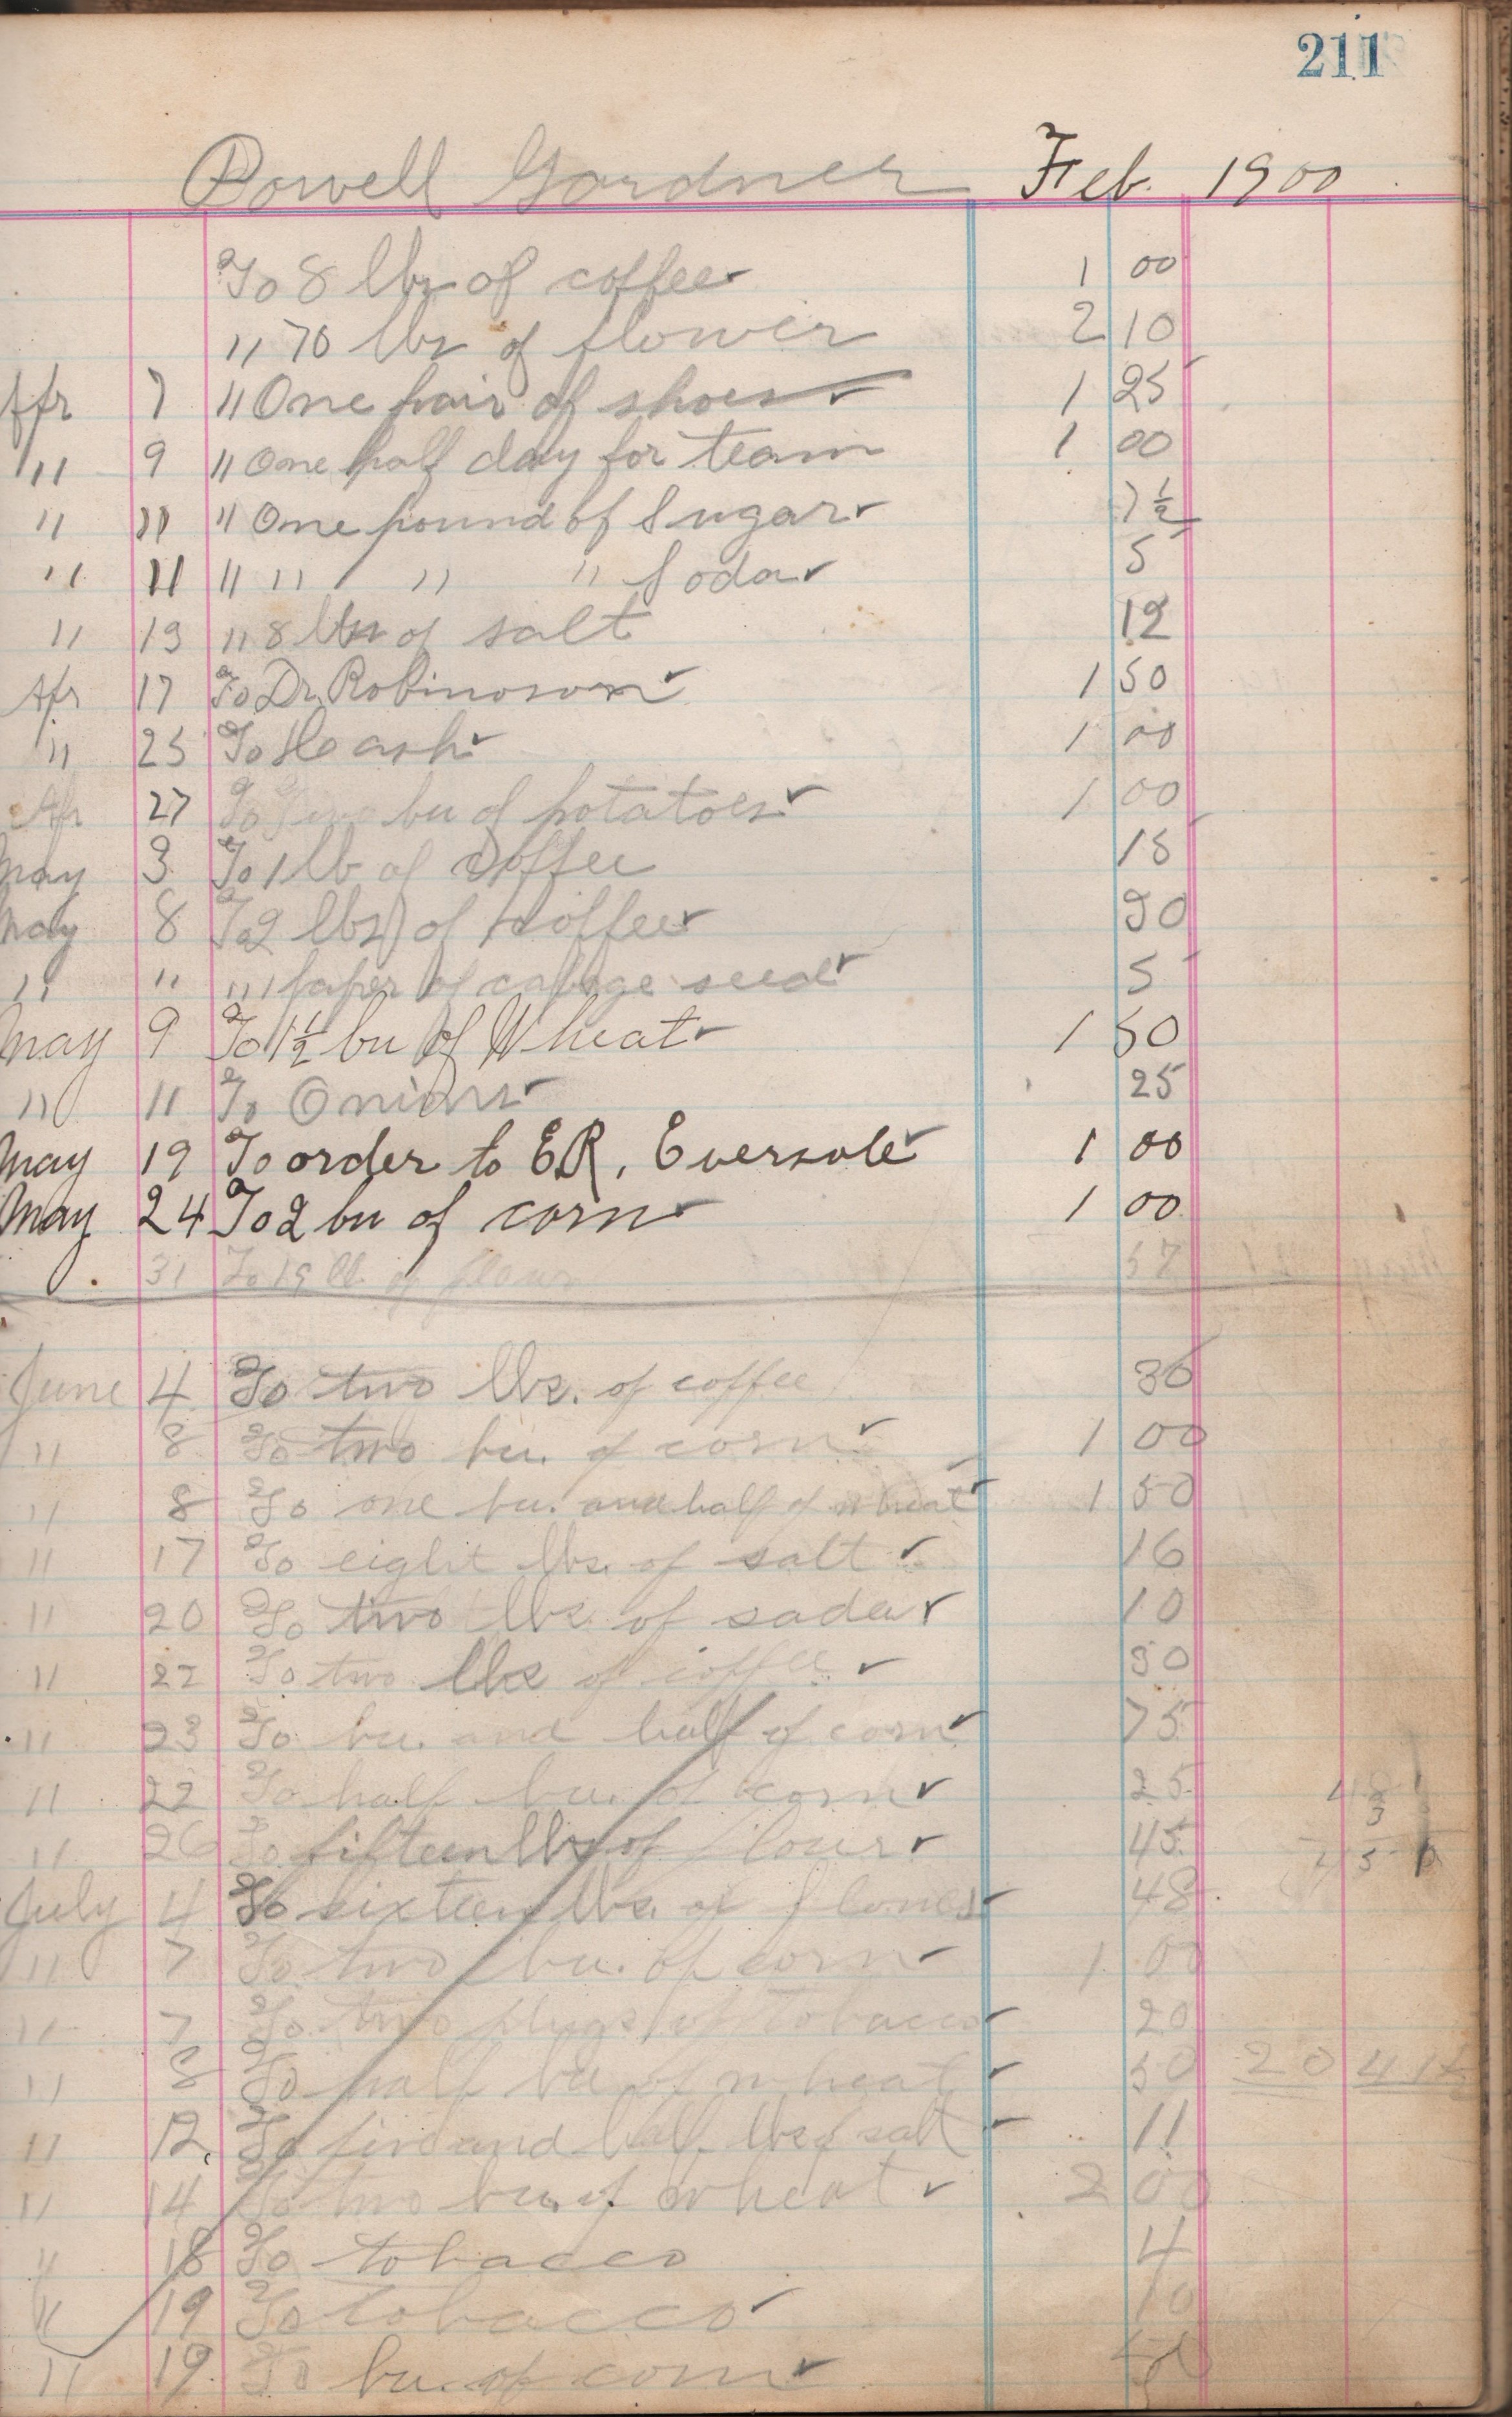 211
Powell Gardner Feb. 1900
To 8 lbs of coffee 1 00
" 70 lbs of flower 2 10
Apr 7 " One pair of shoes 1 25
" 9 " One half day for team 1 00
" 11 " One pound of Sugar 7½
" 11 " " " " Soda 5
" 13 " 8 lbs of salt 12
Apr 17 To Dr. Robinoson 1 50
" 25 To Cash 1 00
Apr 27 To Two bu of potatoes 1 00
May 3 To 1 lb of Coffee 15
May 8 To 2 lbs of Coffee 30
" " " 1 paper of cabage seed 5
May 9 To 1½ bu of Wheat 1 50
" 11 To Onions 25
May 19 To order to E.R. Eversole 1 00
May 24 To 2 bu of corn 1 00
31 To 19 lb. of flour 57
June 4 To two lbs. of coffee 30
" 8 To two bu. of corn 1 00
" 8 To one bu. and half of wheat 1 50
" 17 To eight lbs. of salt 16
" 20 To two lbs. of soda 10
" 22 To two lbs of coffee 30
" 23 To bu. and half of corn 75
" 22 To half bu. of corn 25
" 26 To fifteen lbs of flour 45
July 4 To sixteen lbs. of flour 48
" 7 To two bu. of corn 1 00
" 7 To two plugs of tobacco 20
" 8 To half bu. of wheat 50 20 41½
" 12. To five and half lbs of salt 11
" 14 To two bu. of wheat 2 00
" 18 To tobacco 4
" 19 To tobacco 10
" 19 To bu. of corn